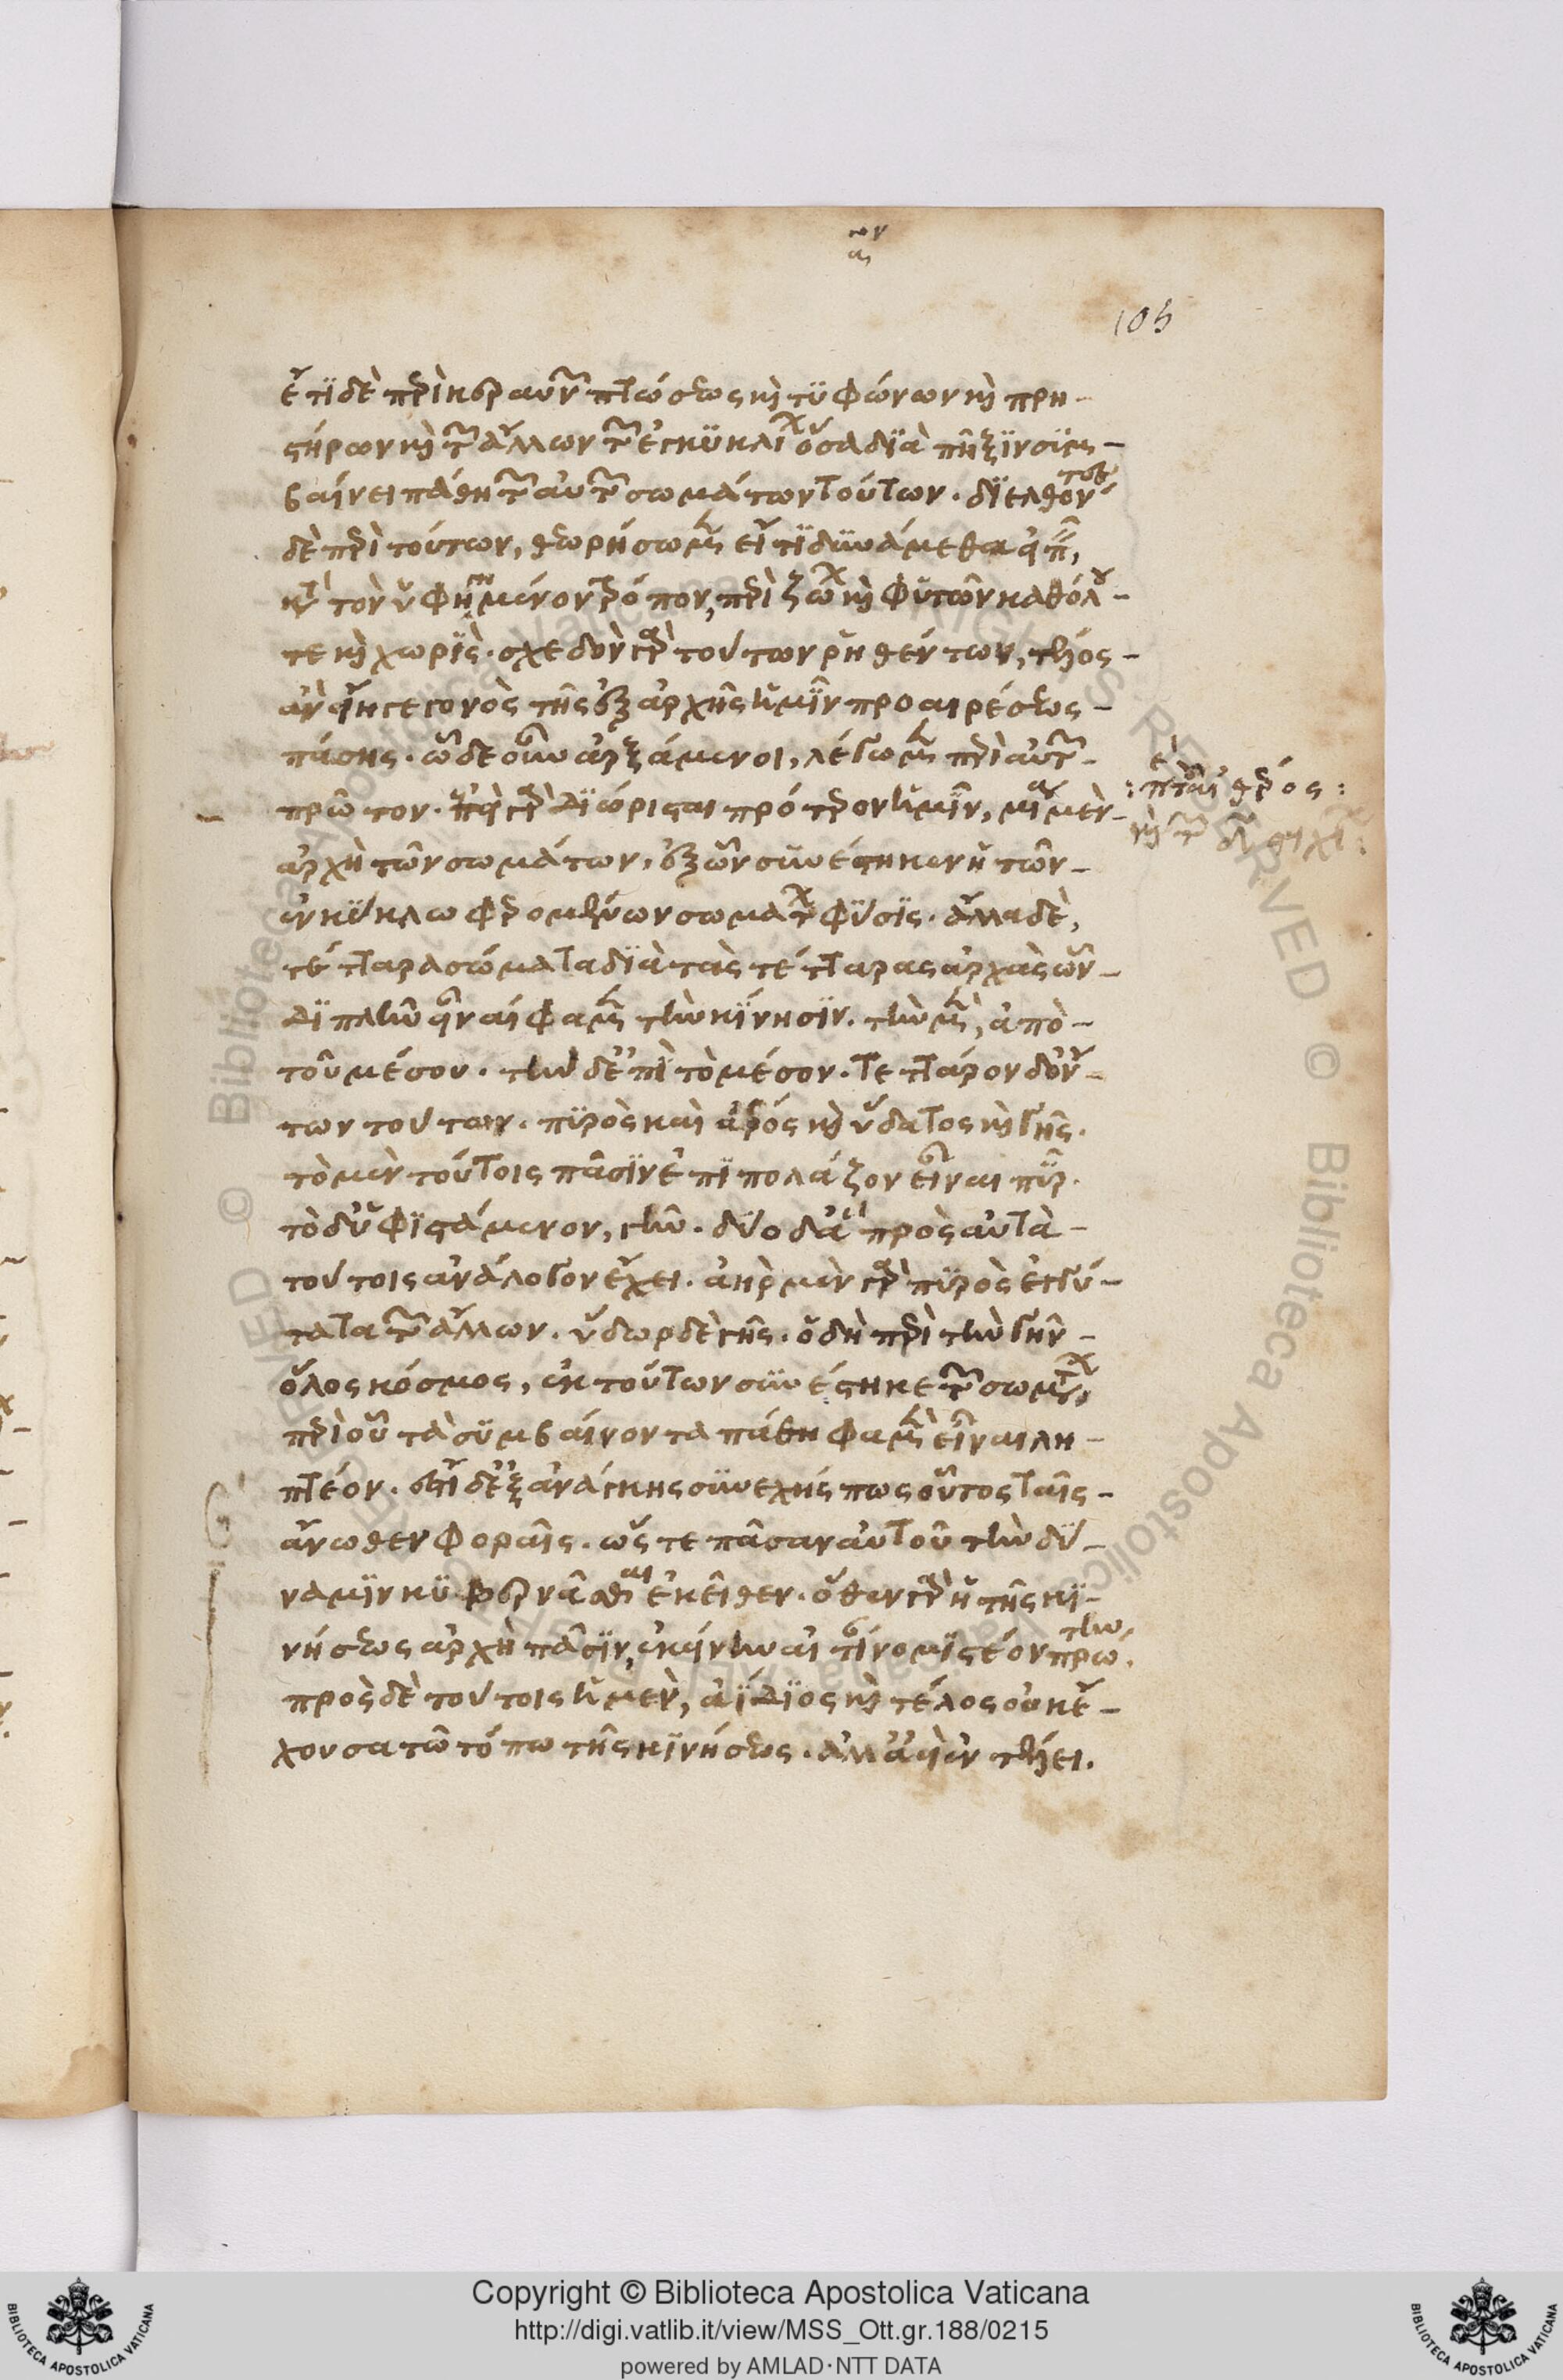 105
ἔτι δὲ περὶ κεραυνῶν πτώσεως καὶ τυφώνων καὶ πρη-
στήρων καὶ τῶν ἄλλων τῶν ἐγκυκλίων ὅσα διὰ πῆξιν συμ-
βαίνει πάθη τῶν αὐτῶν σωμάτων τούτων. διελθόντες
δὲ περὶ τούτων, θεωρήσωμεν εἴ τι δυνάμεθα
κατὰ τὸν ὑφηγημένον τρόπον, περὶ ζώων καὶ φυτῶν καθόλου
τε καὶ χωρίς. σχεδὸν γὰρ τούτων ῥηθέντων, τέλος
ἂν εἴη γεγονὸς τῆς ἐξ ἀρχῆς ἡμῖν προαιρέσεως
πάσης. ὧδε οὖν ἀρξάμενοι, λέγωμεν περὶ αὐτῶν
πρῶτον. ἐπεὶ γὰρ διώρισται πρότερον ἡμῖν, μία μὲν
ἀρχὴ τῶν σωμάτων, ἐξ ὧν συνέστηκεν ἡ τῶν
ἐγκυκλίω φερομένων σωμάτων φύσις. ἄλλα δὲ,
τέτταρα σώματα διὰ τὰς τέτταρας ἀρχὰς ὧν
διπλῆν εἶναί φαμεν τὴν κίνησιν. τὴν μὲν, ἀπὸ
τοῦ μέσου. τὴν δ' ἐπὶ τὸ μέσον. τεττάρον δ' ὄν-
των τούτων. πυρὸς καὶ ἀέρος καὶ ὕδατος καὶ γῆς.
τὸ μὲν τούτοις πᾶσιν ἐπιπολάζον εἶναι πῦρ.
τὸ δ' ὑφιστάμενον, γῆν. δύο δὲ ἃ πρὸς αὐτὰ
τούτοις ἀνάλογον ἔχει. ἀὴρ μὲν γὰρ πυρὸς ἐγγύ-
τατα τῶν ἄλλων. ὕδωρ δὲ γῆς. ὁ δὴ περὶ τὴν γῆν
ὅλος κόσμος, ἐκ τούτων συνέστηκε τῶν σωμάτων,
περὶ οὗ τὰ συμβαίνοντα πάθη φαμὲν εἶναι λη-
πτέον. ἔστι δ' ἐξ ἀνάγκης συνεχής πως οὗτος ταῖς
ἄνωθεν φοραῖς. ὥστε πᾶσαν αὐτοῦ τὴν δύ-
ναμιν κυβερνᾶσθαι ἐκεῖθεν. ὅθεν γὰρ ἡ τῆς κι-
νήσεως ἀρχὴ πᾶσιν, ἐκείνην αἰτίαν νομιστέον πρώτην.
πρὸς δὲ τούτοις ἡ μὲν, ἀΐδιος καὶ τέλος οὐκ ἔ-
χουσα τῶ τόπω τῆς κινήσεως. ἀλλ' ἀεὶ ἐν τέλει.
Copyright © Biblioteca Apostolica Vaticana
http://digi.vatlib.it/view/MSS_Ott.gr.188/0215
powered by AMLAD·NTT DATA
BIBLIOTECA APOSTOLICA VATICANA
BIBLIOTECA APOSTOLICA VATICANA